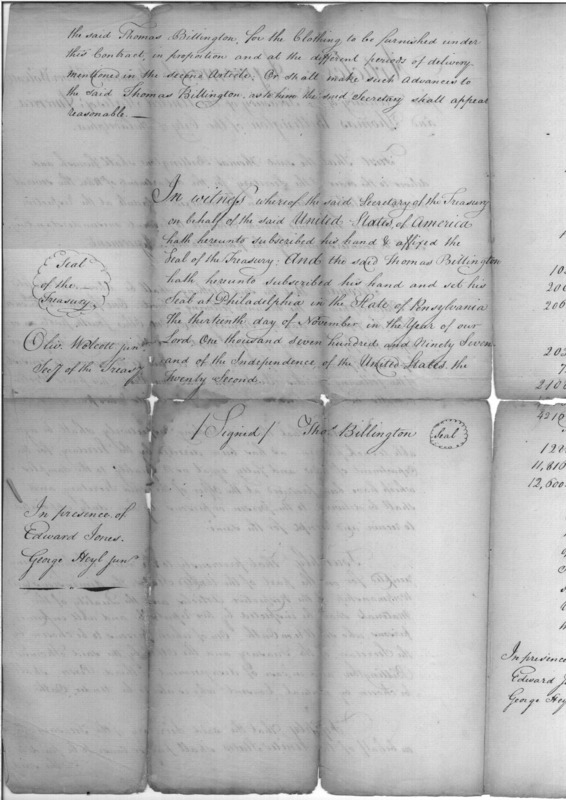 the said Thomas Billington, for the Clothing to be furnished under
this Contract, in proportion and at the different periods of delivery
mentioned in the second Article, Or shall make such advances to
the said Thomas Billington, as to him the said Secretary shall appear
reasonable.—
In witness whereof the said Secretary of the Treasury
on behalf of the said United States of America
hath hereunto subscribed his hand & affixed the
Seal of the Treasury: And the said Thomas Billington
hath hereunto subscribed his hand and set his
Seal at Philadelphia in the State of Pennsylvania
the thirteenth day of November in the Year of our
Lord, One thousand seven hundred and Ninety Seven
and of the Independence of the United States the
Twenty Second.
Seal
of the
Treasury
Oliv. Wolcott jun
Secy of the Treasy
/Signed/ Thos. Billington
Seal
In presence of
Edward Jones.
George Heyl junr
2100
4210
11,816
12,600
In presence
Edward J
George Hey